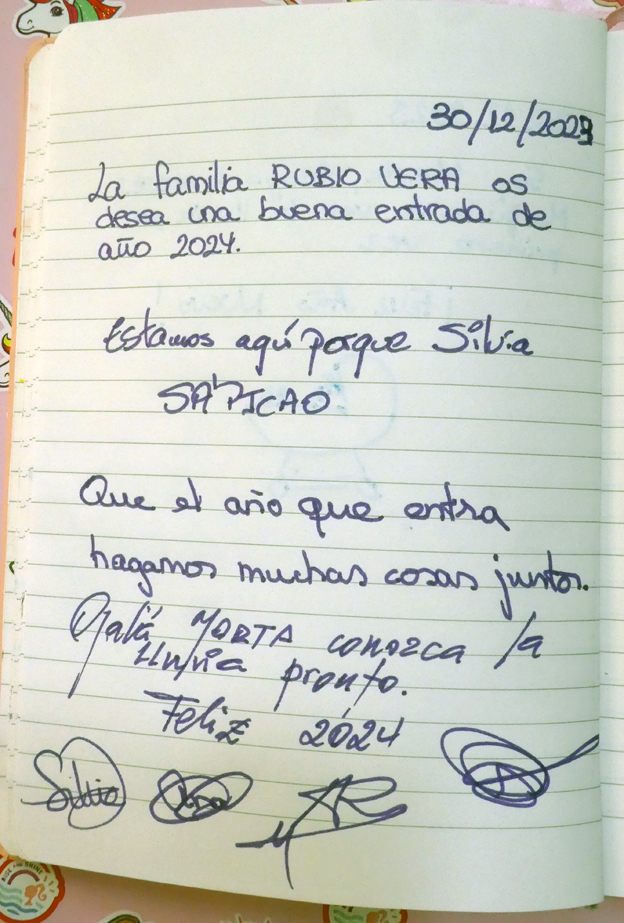 30/12/2023
La familia RUBIO VERA os
desea una buena entrada de
año 2024.
Estamos aquí porque Silvia
SA'PICAO
Que el año que entra
hagamos muchas cosas juntos.
Ojalá MARTA conozca la
lluvia pronto.
Feliz 2024
Silvia
AR